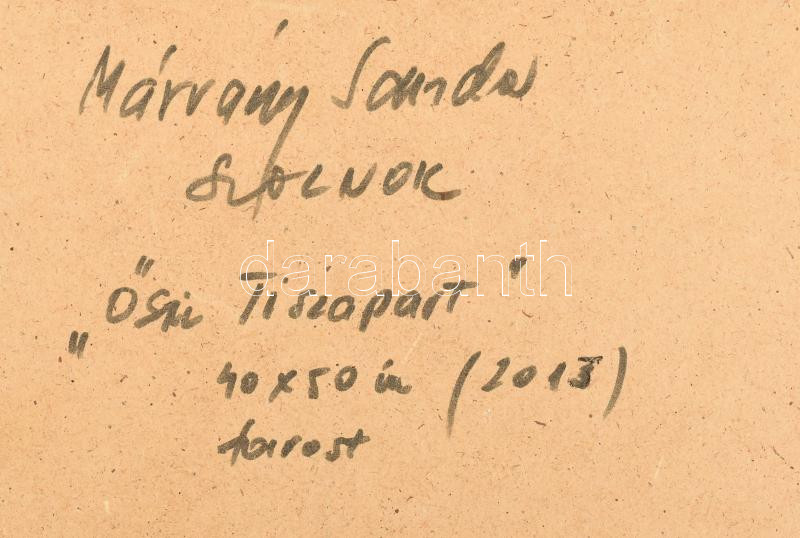 Márvány Sándor
SZOLNOK
darabanth
„Őszi Tiszapart"
40x50 cm (2013)
farost